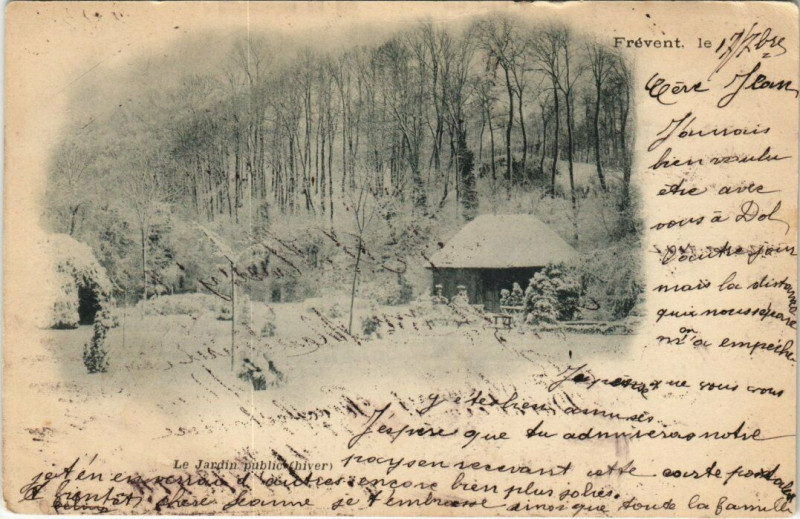 Frévent, le 17/7bre
Cère Jean,
J'aurais
bien voulu
être avec
vous à Dol
l'autre jour
mais la distance
qui nous sépare
m'a empêché.
on
Je pense que vous vous
y êtes bien amusés
J'espère que tu admireras notre
pays en recevant cette carte postale
je t'en enverrai d'autres encore bien plus jolies.
A bientôt, chère Jeanne je t'embrasse ainsi que toute la famille
Le Jardin public (hiver)